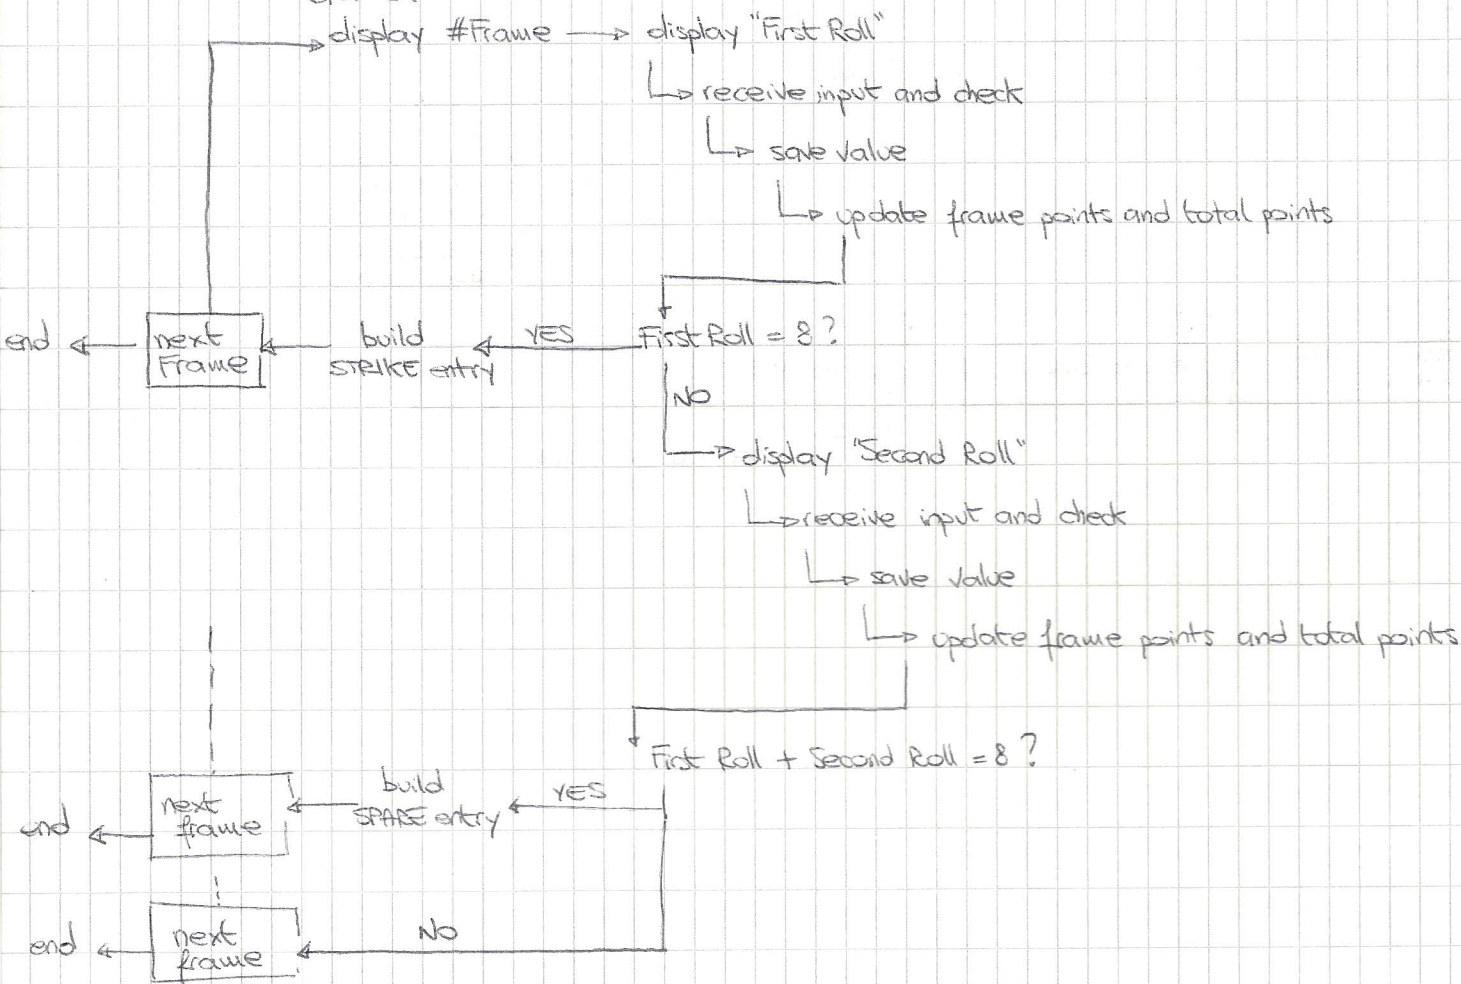 display #Frame → display "First Roll"
receive input and check
save value
update frame points and total points
end
next
Frame
build
STRIKE entry
YES
First Roll = 8 ?
NO
display "Second Roll"
receive input and check
save value
update frame points and total points
First Roll + Second Roll = 8 ?
end
next
frame
build
SPARE entry
YES
end
next
frame
NO